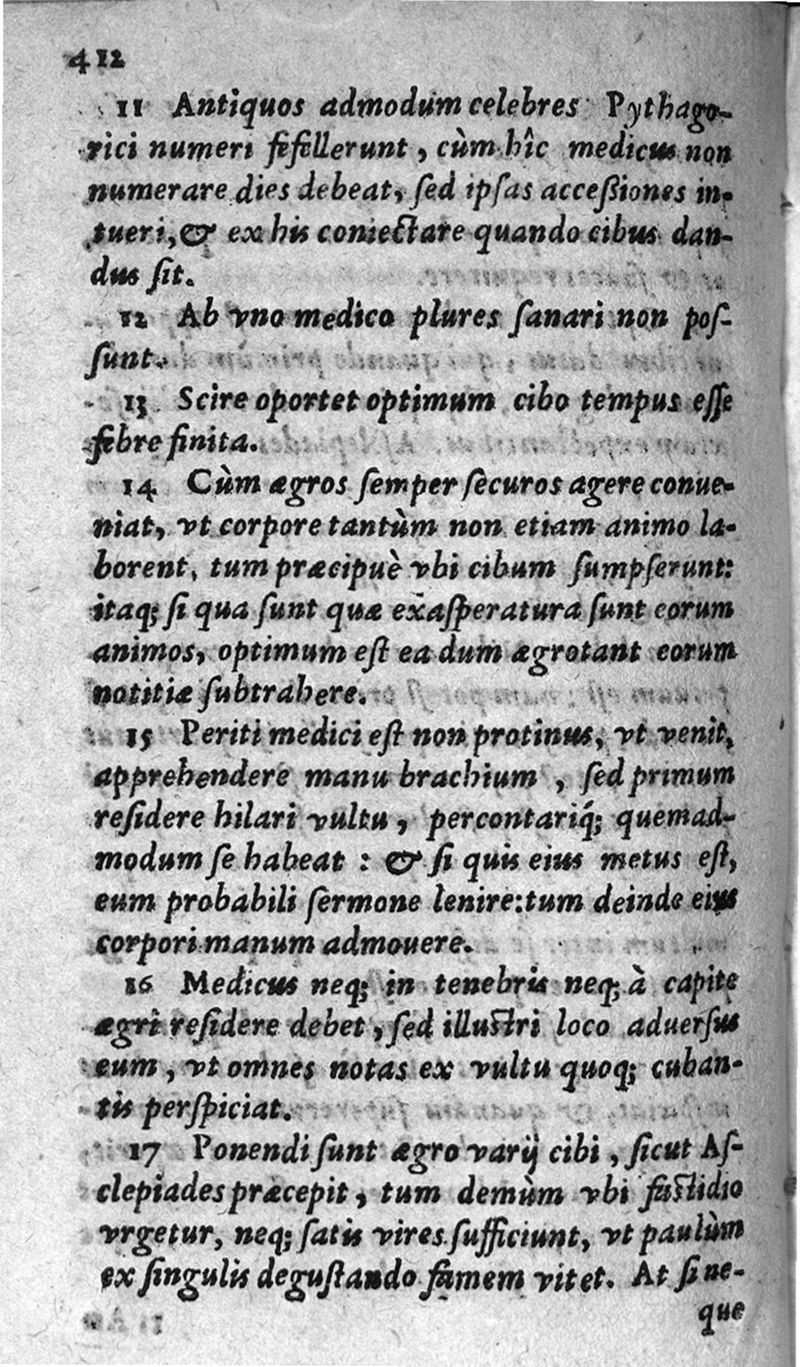 412
11 Antiquos admodum celebres Pythago-
rici numeri fefellerunt, cùm hîc medicus non
numerare dies debeat, ſed ipſas acceßiones in-
tueri, & ex his coniectare quando cibus dan-
dus ſit.
12 Ab vno medico plures ſanari non poſ-
ſunt.
13 Scire oportet optimum cibo tempus eſſe
febre finita.
14 Cùm ægros ſemper ſecuros agere conue-
niat, vt corpore tantùm non etiam animo la-
borent, tum præcipuè vbi cibum ſumpſerunt:
itaq; ſi qua ſunt quæ exaſperatura ſunt eorum
animos, optimum eſt ea dum ægrotant eorum
notitiæ ſubtrahere.
15 Periti medici eſt non protinus, vt venit,
apprehendere manu brachium, ſed primum
reſidere hilari vultu, percontariq́; quemad-
modum ſe habeat : & ſi quis eius metus eſt,
eum probabili ſermone lenire: tum deinde eius
corpori manum admouere.
16 Medicus neq; in tenebris neq; à capite
ægri reſidere debet, ſed illuſtri loco aduerſus
eum, vt omnes notas ex vultu quoq; cuban-
tis perſpiciat.
17 Ponendi ſunt ægro varij cibi, ſicut Aſ-
clepiades præcepit, tum demùm vbi faſtidio
vrgetur, neq; ſatis vires ſufficiunt, vt paulùm
ex ſingulis deguſtando famem vitet. At ſi ne-
que